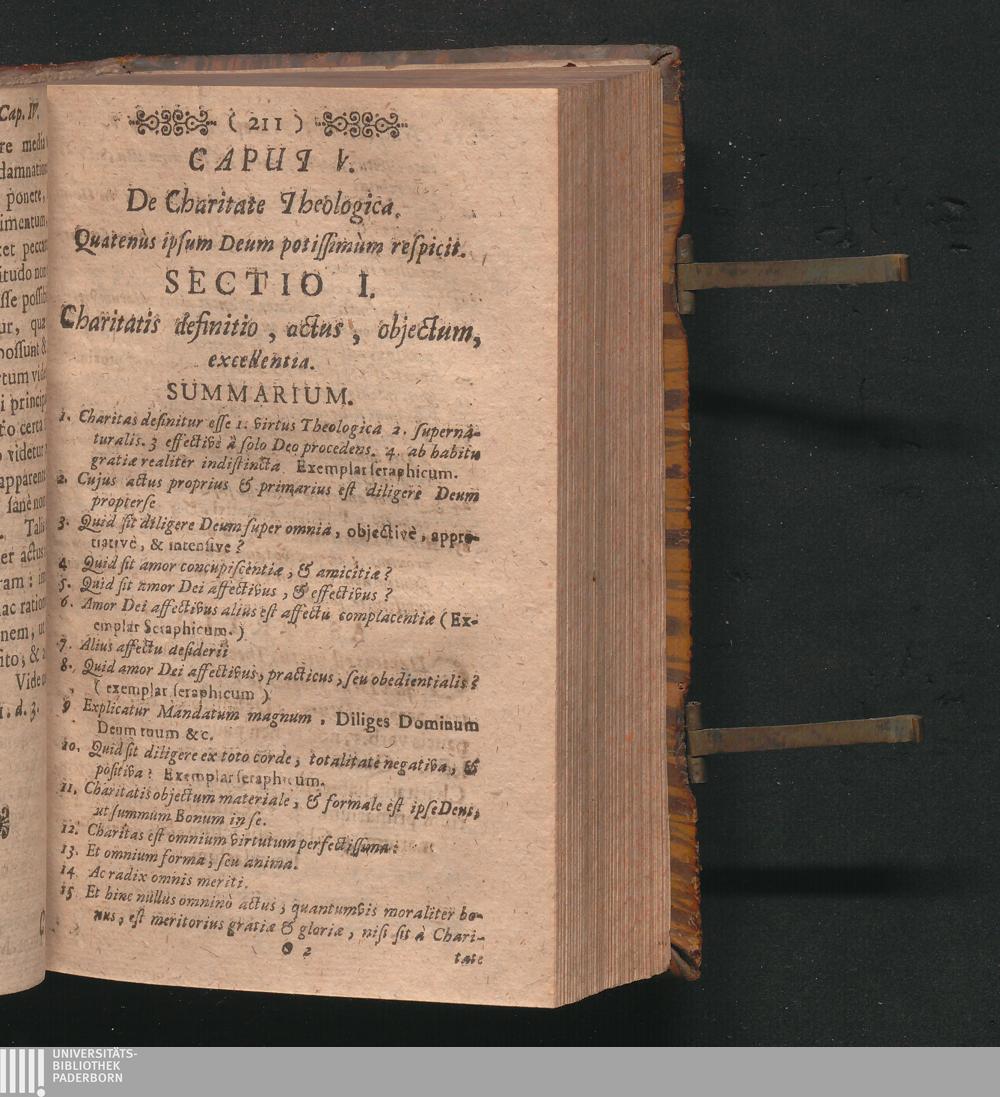 Cap. IV.
re media
damnation
ponere,
imentum,
itudo non
ur, qua
possunt &
i princip
videtur
apparent
sanè non
Tali
er actus
ram: in
ac ration
nem, ut
ito; & a
Vide
1. d. 3.
( 211 )
CAPUT V.
De Charitate Theologica.
Quatenùs ipsum Deum potissimùm respicit.
SECTIO I.
Charitatis definitio, actus, objectum,
excellentia.
SUMMARIUM.
1. Charitas definitur esse 1. virtus Theologica 2. superna-
turalis. 3 effectivè à solo Deo procedens. 4. ab habitu
gratiæ realiter indistincta Exemplar seraphicum.
2. Cujus actus proprius & primarius est diligere Deum
propter se
3. Quid sit diligere Deum super omnia, objectivè, appre-
tiativè, & intensive?
4 Quid sit amor concupiscentiæ, & amicitiæ?
5. Quid sit amor Dei affectivus, & effectivus?
6. Amor Dei affectivus alius est affectu complacentiæ (Ex-
emplar Seraphicum.)
7. Alius affectu desiderii
8. Quid amor Dei affectivus, practicus, seu obedientialis?
( exemplar seraphicum )
9 Explicatur Mandatum magnum, Diliges Dominum
Deum tuum &c.
10. Quid sit diligere ex toto corde, totalitate negativa, &
positiva? Exemplar seraphicum.
11. Charitatis objectum materiale, & formale est ipse Deus,
ut summum Bonum in se.
12. Charitas est omnium virtutum perfectissima:
13. Et omnium forma, seu anima.
14. Ac radix omnis meriti.
15 Et hinc nullus omninò actus, quantumvis moraliter bo-
nus, est meritorius gratiæ & gloriæ, nisi sit à Chari-
O 2
tate
UNIVERSITÄTS-
BIBLIOTHEK
PADERBORN